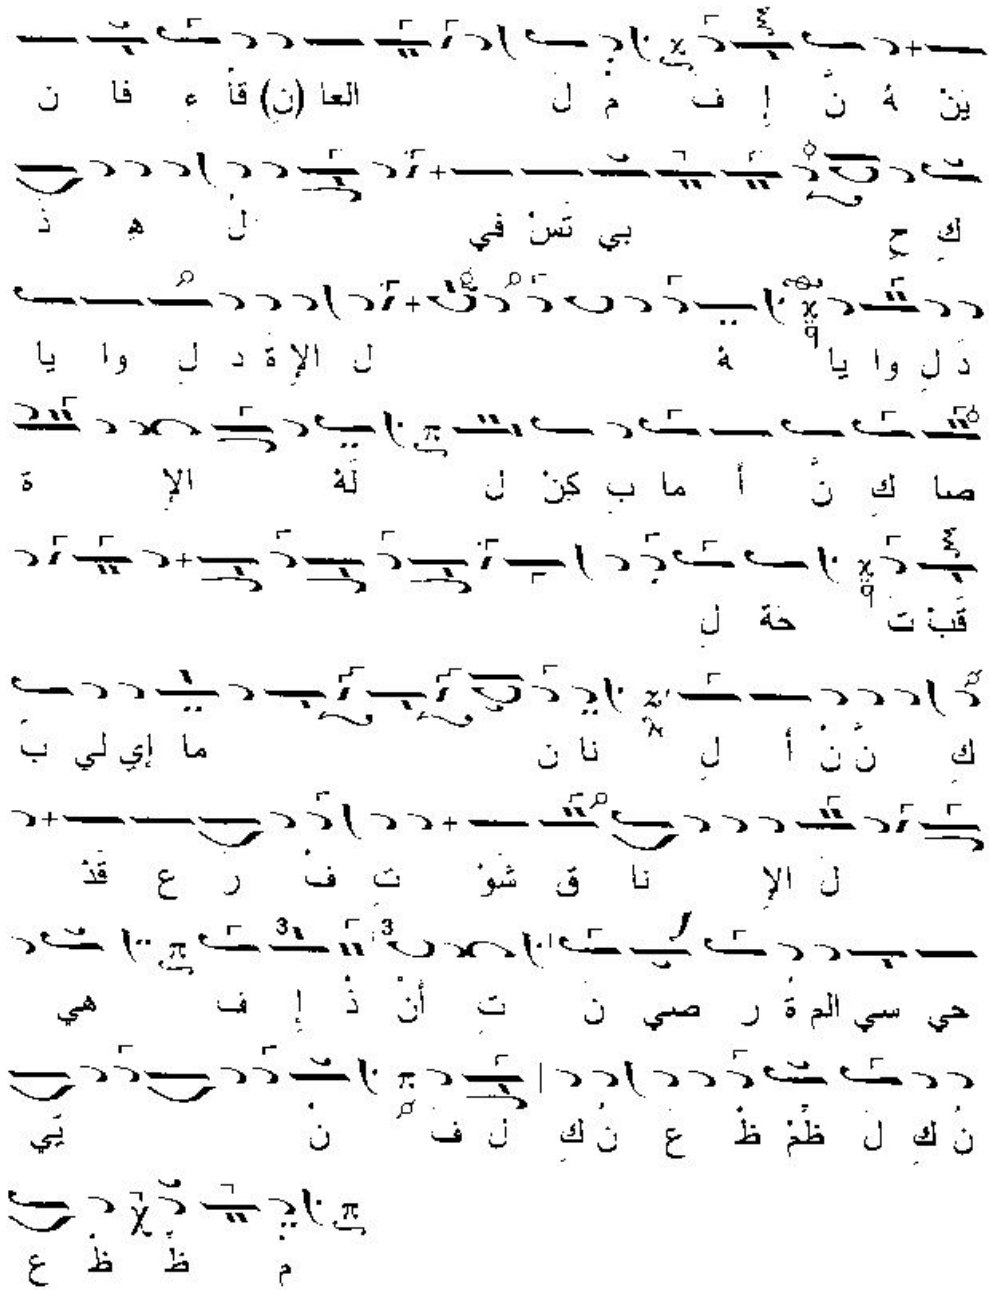 يَنْ هُ نَّ إِ فَ مْ لَ العا (نِ) قاْ ءِ فا ن
كِ حِ بي تَسْ في لْ هِ ذَ
ذَ لِ وا يا ةْ ل الإِ ةَ د لِ وا يا
صا كِ نَّ أ ما بِ كِنْ ل لَهْ الإِ ة
قَبْ تَ حَة لِ
كِ نَّ نْ أ لِ نا ن ما إي لي بَ
لَ الإِ نا ق شَوْ تِ فْ رَ ع قَدْ
حي سي الم ةُ ر صي نَ تِ أنْ ذْ إِ فَ هي
نُ كِ لَ ظِّمْ ظْ عَ نُ كِ ل فَ نْ يَي
مْ ظِّ ظْ ع